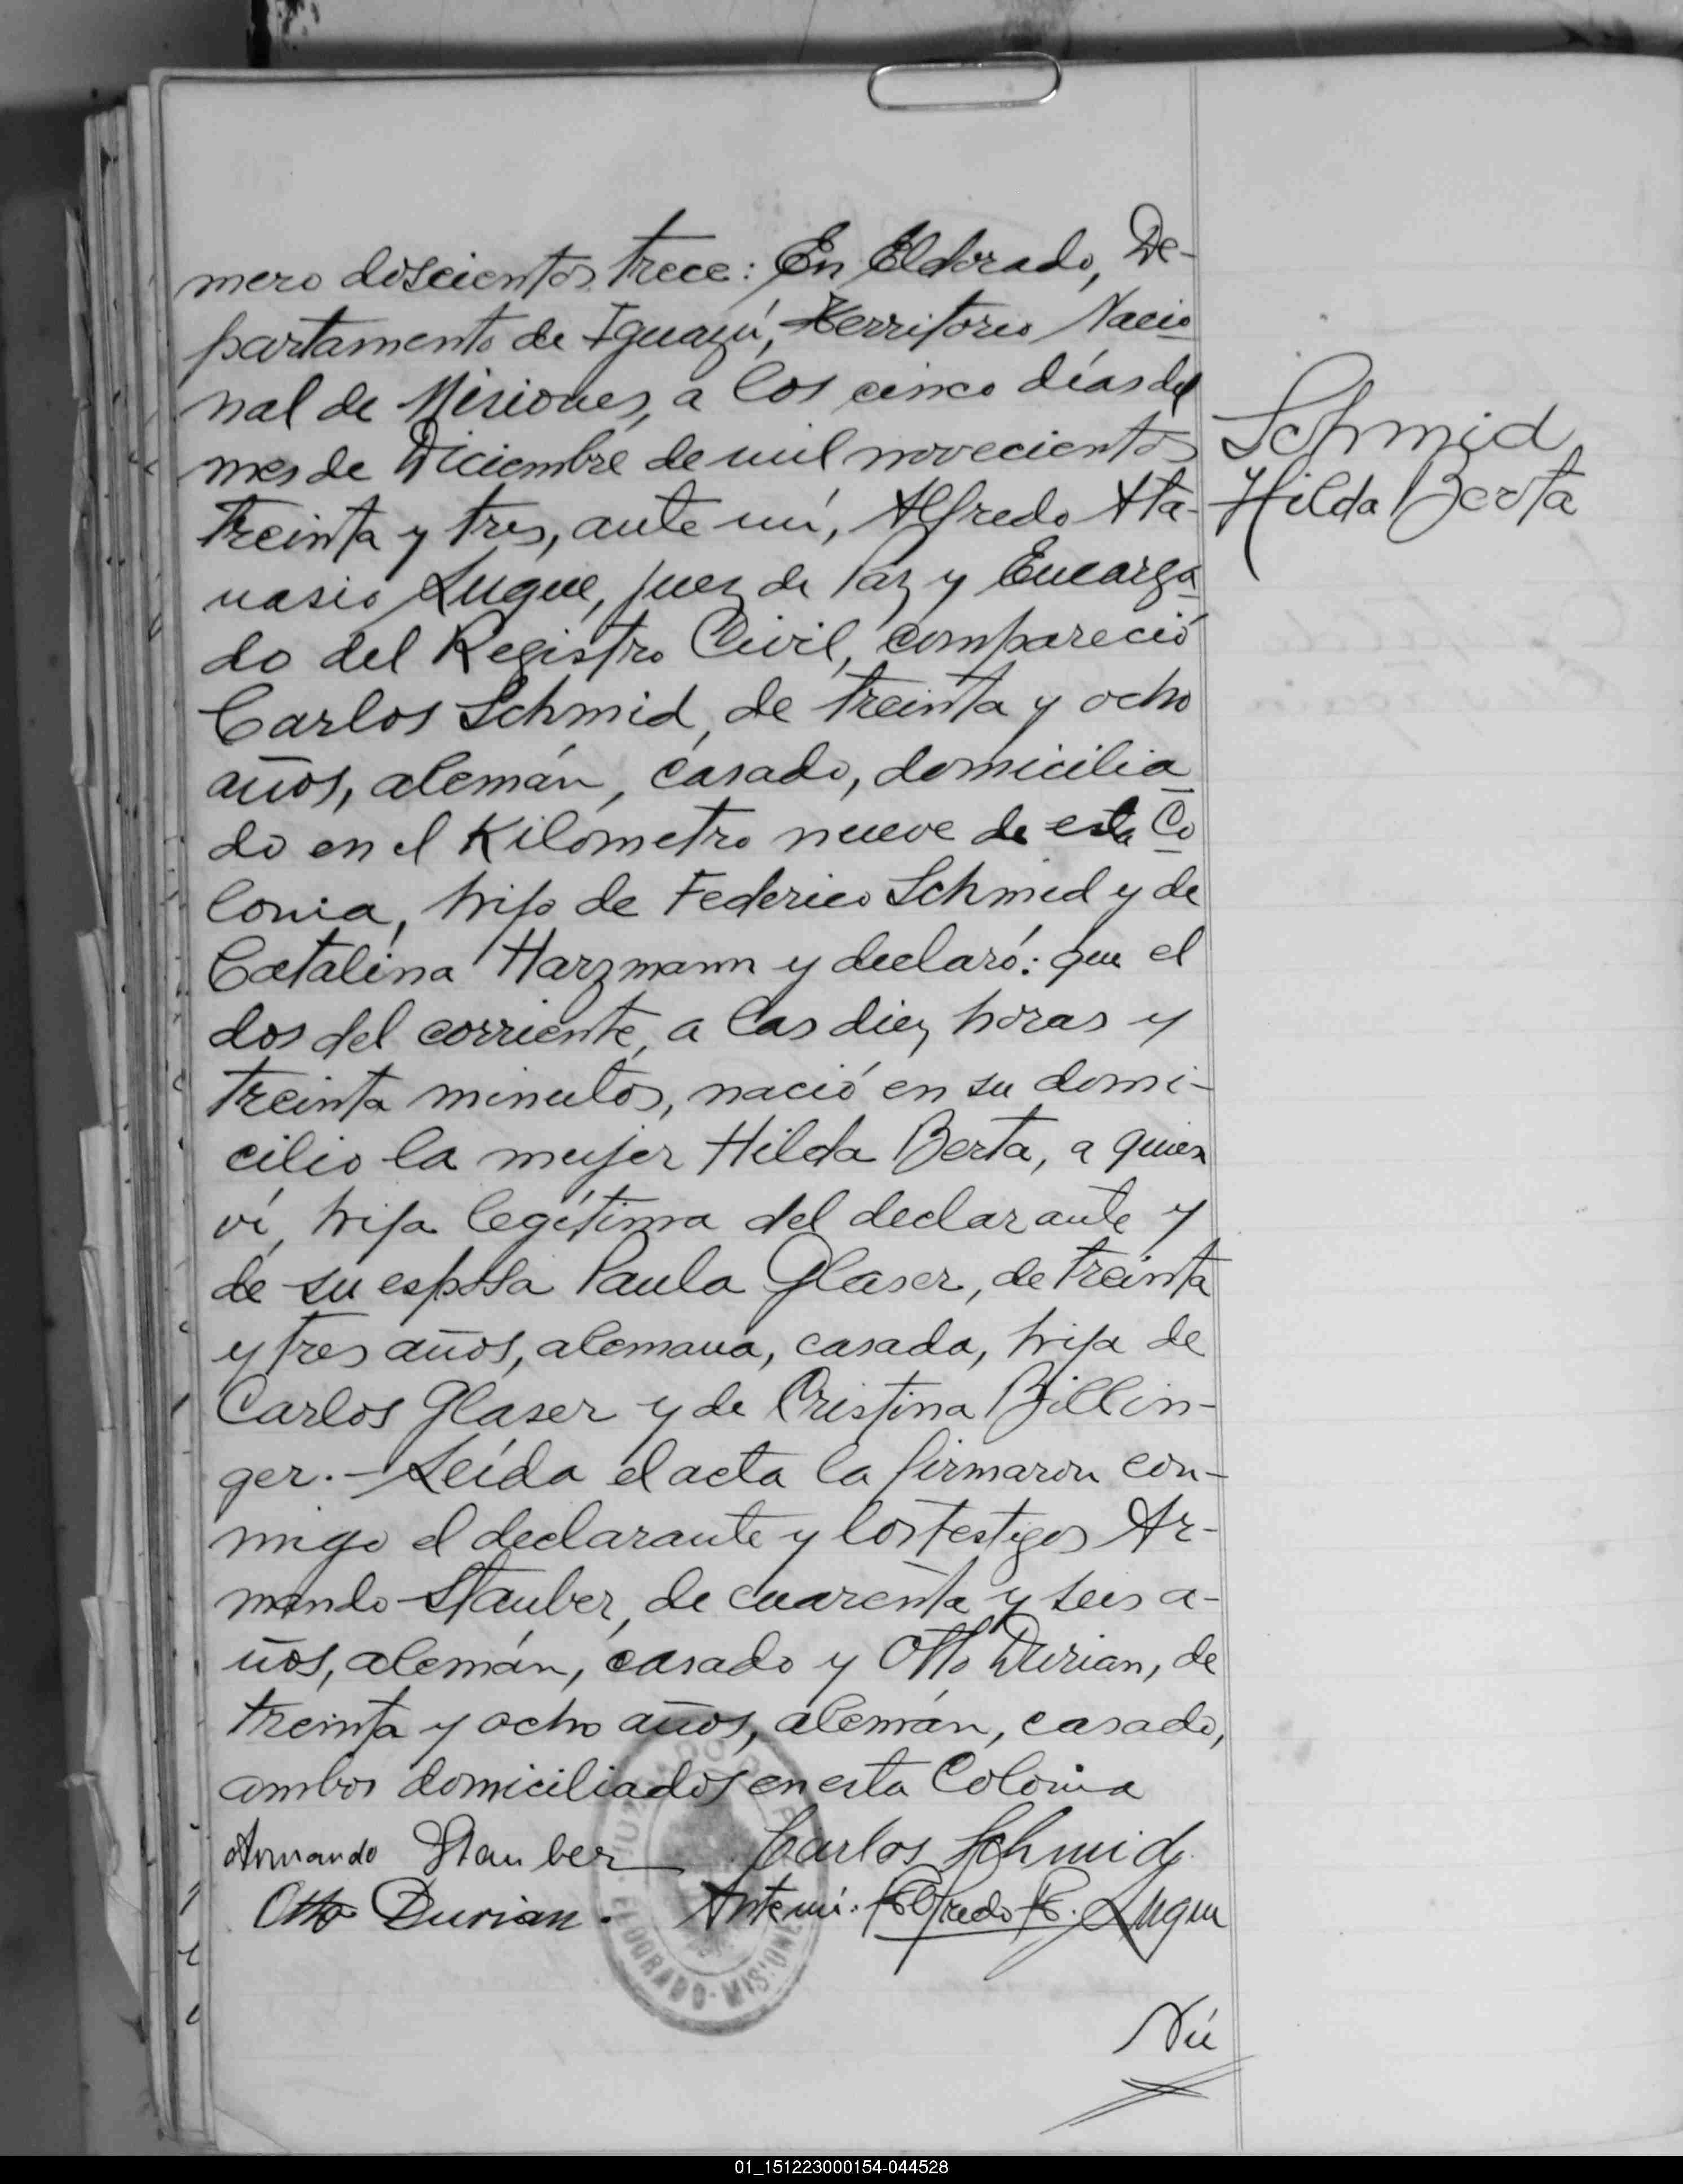 mero doscientos trece: En Eldorado, De-
partamento de Iguazú, Territorio Nacio
nal de Misiones, a los cinco días del
mes de Diciembre de mil novecientos
treinta y tres, ante mí, Alfredo Ata-
nasio Luque, juez de Paz y Encarga
do del Registro Civil, compareció
Carlos Schmid, de treinta y ocho
años, alemán, casado, domicilia
do en el Kilómetro nueve de esta Co
lonia, hijo de Federico Schmid y de
Catalina Harzmann y declaró: que el
dos del corriente, a las diez horas y
treinta minutos, nació en su domi-
cilio la mujer Hilda Berta, a quien
ví, hija legítima del declarante y
de su esposa Paula Glaser, de treinta
y tres años, alemana, casada, hija de
Carlos Glaser y de Cristina Billin-
ger.- Leída el acta la firmaron con-
migo el declarante y los testigos Ar-
mando Stauber, de cuarenta y seis a-
ños, alemán, casado y Otto Durian, de
treinta y ocho años, alemán, casado,
ambos domiciliados en esta Colonia
Armando Stauber Carlos Schmid.
Otto Durian. Ante mí. Alfredo A. Luque
ELDORADO - MISIONES
Nú
Schmid,
Hilda Berta
01_151223000154-044528